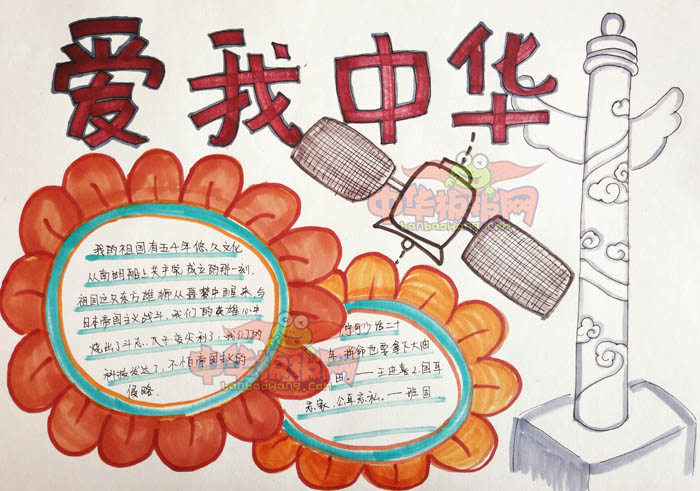 爱我中华
我的祖国有五千年悠久文化
从南湖船上关于党成立的那一刻,
祖国这只东方雄狮从噩梦中醒来,与
日本帝国主义战斗,我们的英雄心中
烧出了斗志,终于胜利了,我们的
科技发达了,不怕帝国主义的
侵略.
宁可少活二十
年,拼命也要拿下大油
田。——王进喜2.国耳
忘家,公耳忘私。——班固
中华板报网
banbaowang.com
中华板报网
banbaowang.com